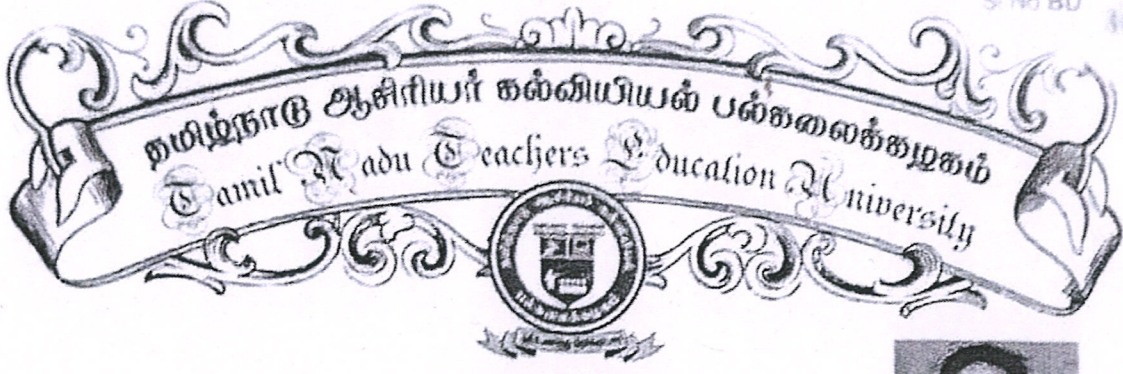 S. No BD
தமிழ்நாடு ஆசிரியர் கல்வியியல் பல்கலைக்கழகம்
Tamil Nadu Teachers Education University